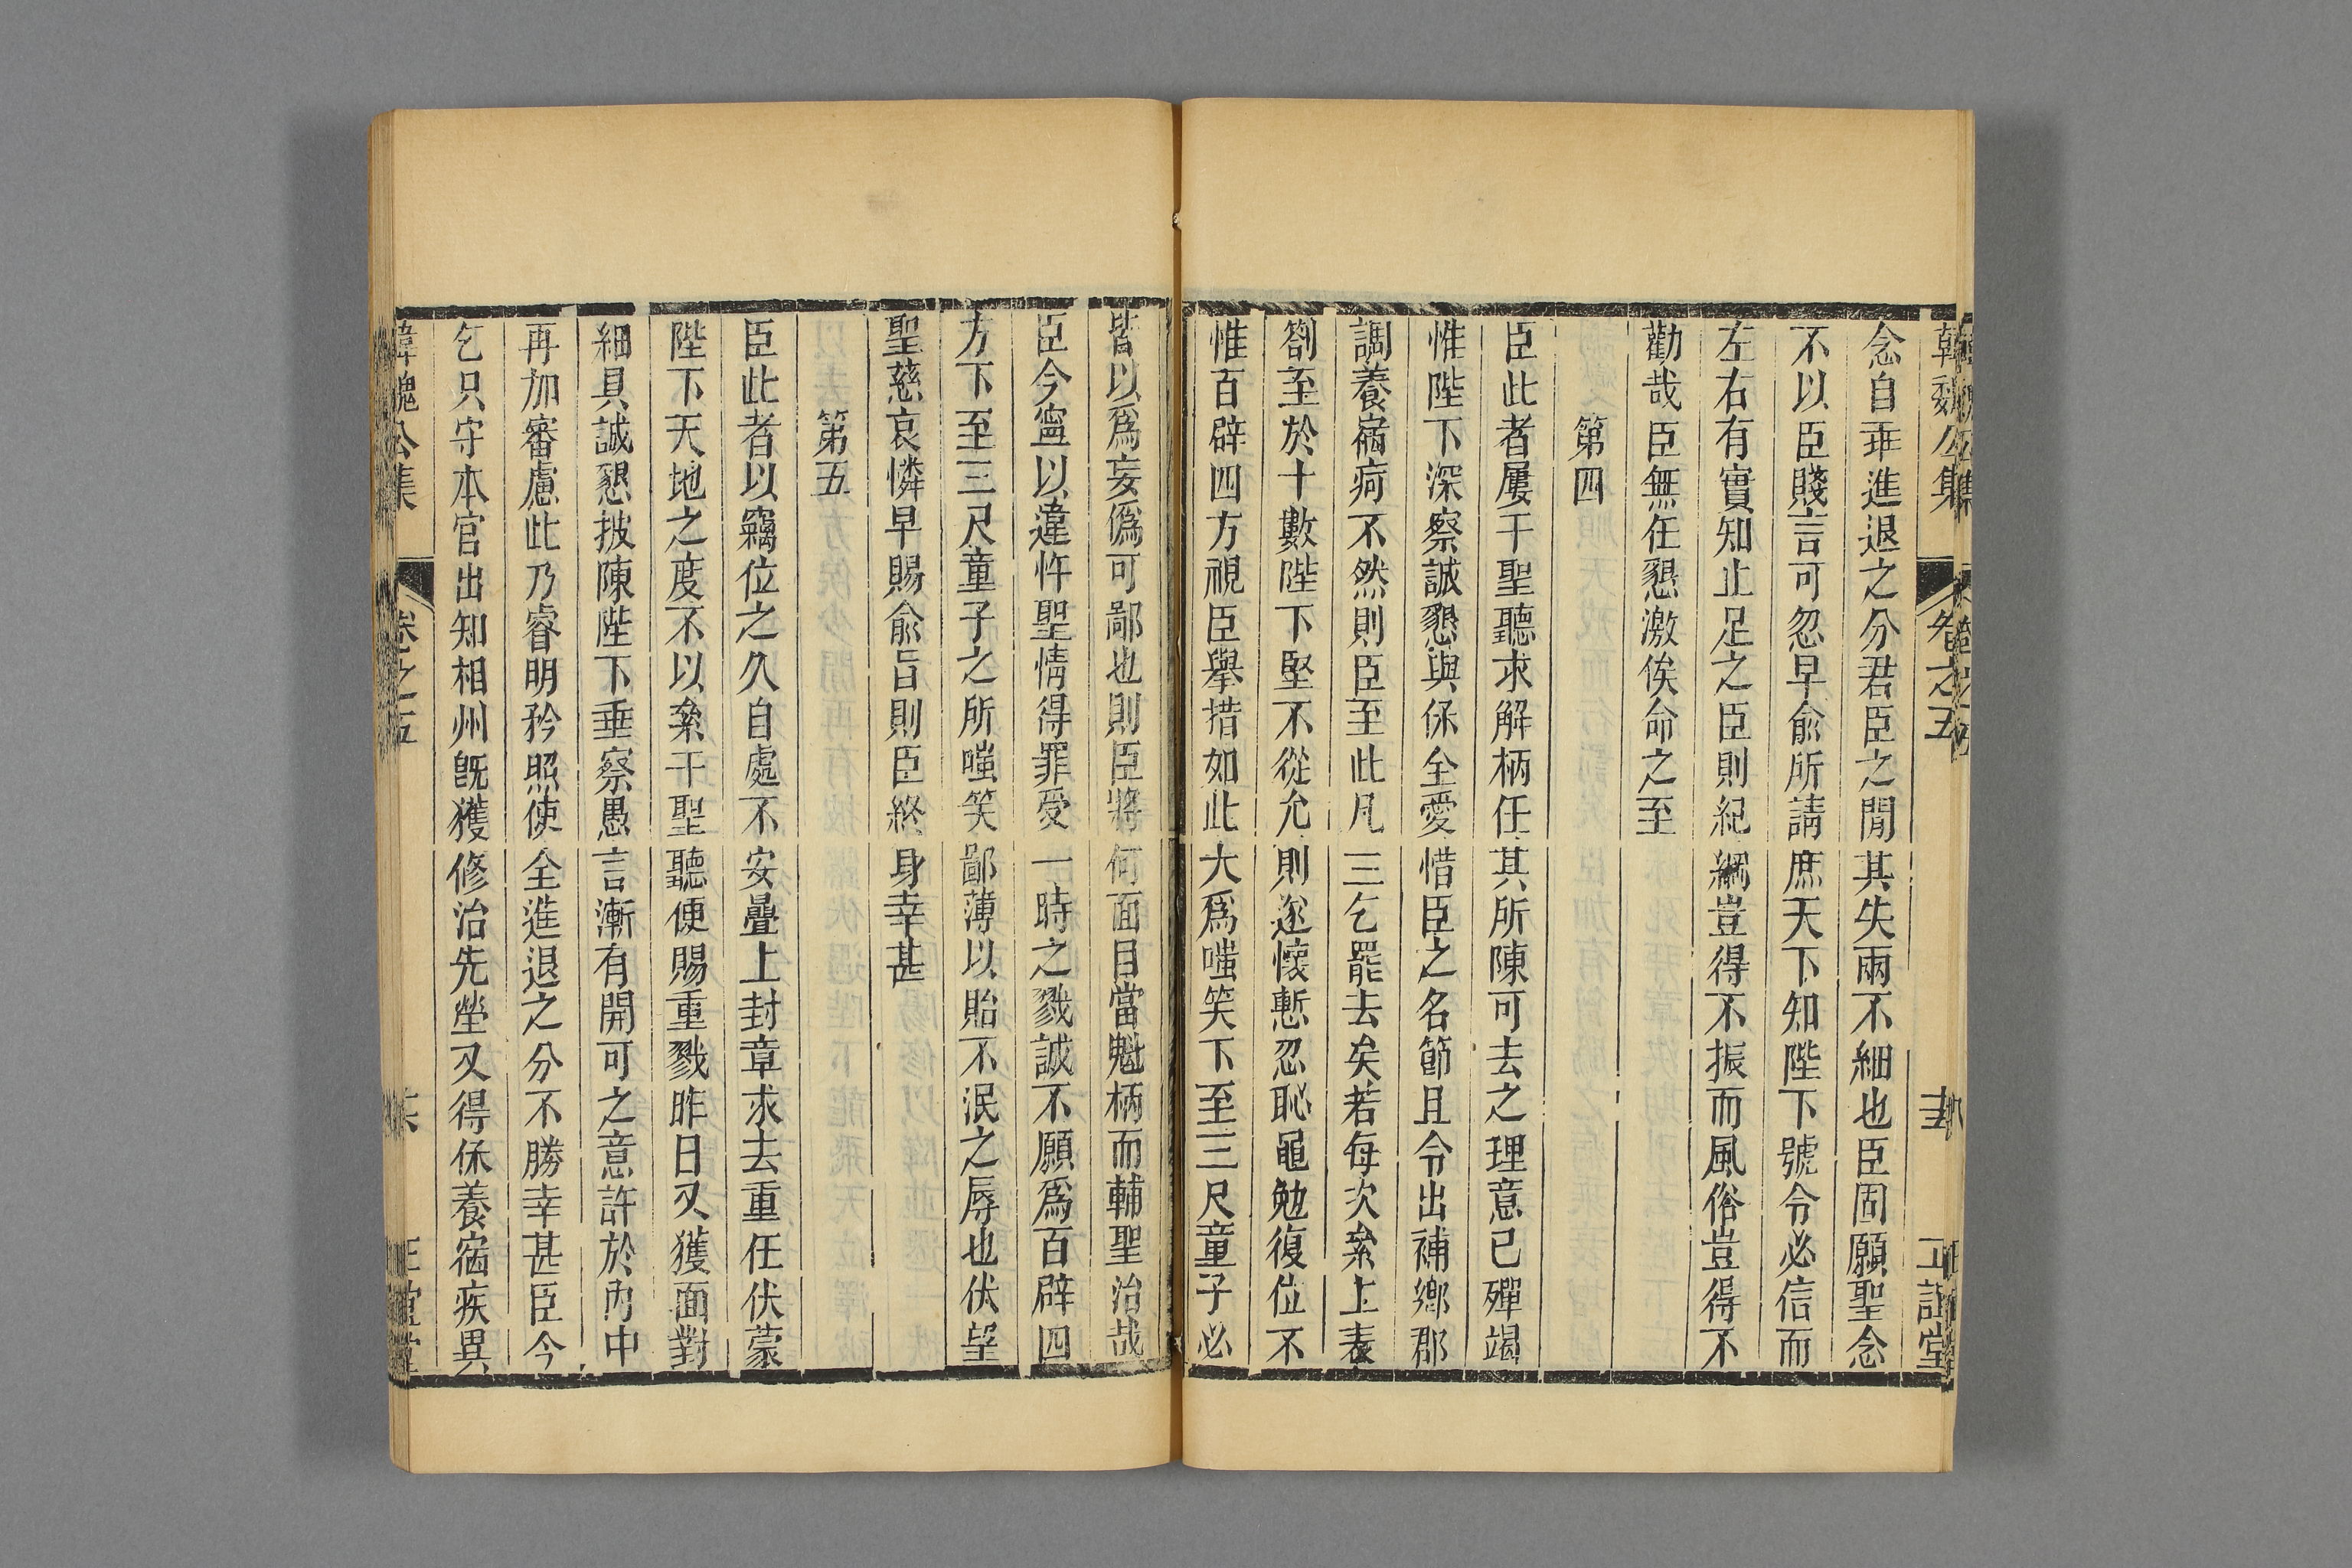 韓魏公集 卷之五 十五 正誼堂
念自乖進退之分君臣之間其失兩不細也臣固願聖念
不以臣賤言可忽早俞所請庶天下知陛下號令必信而
左右有實知止足之臣則紀綱豈得不振而風俗豈得不
勸哉臣無任懇激俟命之至
第四
臣此者屢干聖聽求解柄任其所陳可去之理意已殫竭
惟陛下深察誠懇與保全愛惜臣之名節且令出補鄉郡
調養宿疴不然則臣至此凡三乞罷去矣若每次纍上表
劄至於十數陛下堅不從允則遂懷慙忍恥黽勉復位不
惟百辟四方視臣舉措如此大爲嗤笑下至三尺童子必
皆以爲妄僞可鄙也則臣將何面目當魁柄而輔聖治哉
臣今寧以違忤聖情得罪受一時之戮誠不願爲百辟四
方下至三尺童子之所嗤笑鄙薄以貽不泯之辱也伏望
聖慈哀憐早賜俞旨則臣終身幸甚
第五
臣此者以竊位之久自處不安疊上封章求去重任伏蒙
陛下天地之度不以纍干聖聽便賜重戮昨日又獲面對
細具誠懇披陳陛下垂察愚言漸有開可之意許於內中
再加審慮此乃睿明矜照使全進退之分不勝幸甚臣今
乞只守本官出知相州旣獲修治先塋又得保養宿疾異
韓魏公集 卷之五 正誼堂